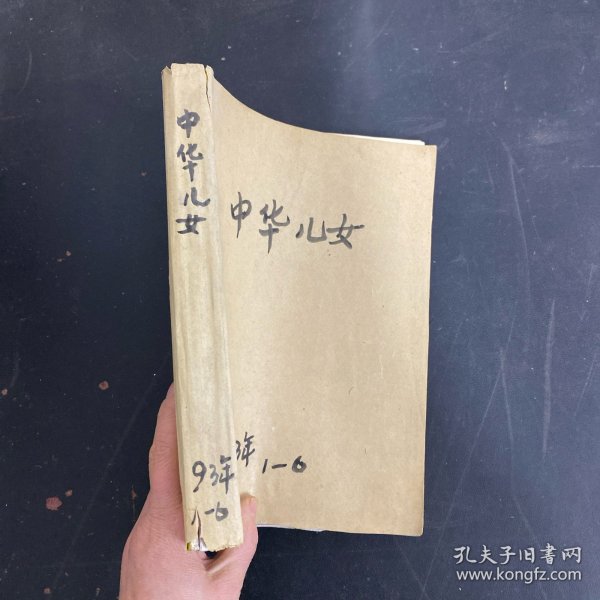 中华儿女
93年
1-6
中华儿女
3年 1-6
孔夫子旧書网
www.kongfz.com